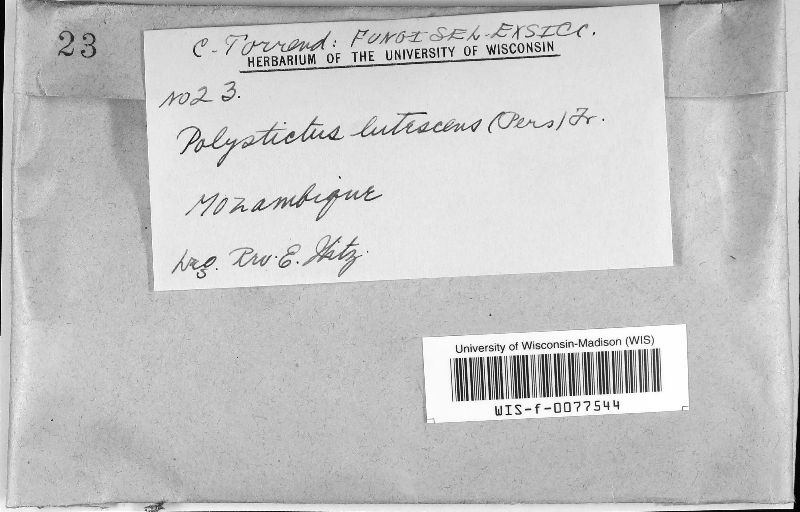 23
C. Torrend: FUNGI SEL. EXSICC.
HERBARIUM OF THE UNIVERSITY OF WISCONSIN
No 23.
Polystictus lutescens (Pers) Fr.
Mozambique
Leg. Rev. E.
University of Wisconsin-Madison (WIS)
WIS-f-0077544